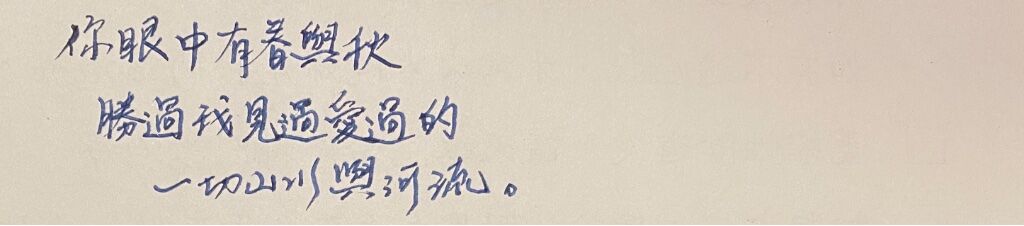 你眼中有春與秋
勝過我見過愛過的
一切山川與河流。